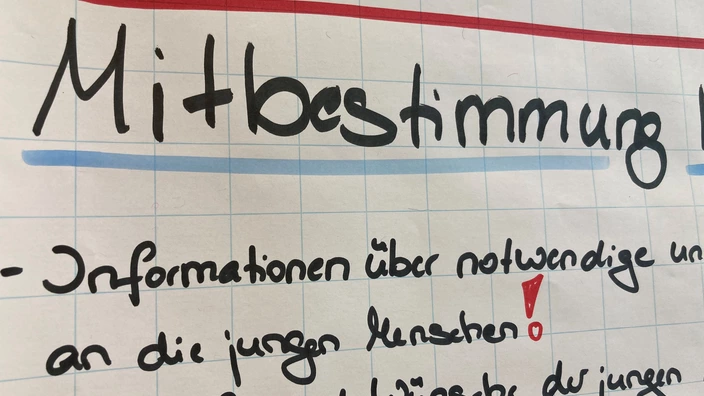 Mitbestimmung
- Informationen über notwendige un
an die jungen Menschen!
Wünsche der jungen